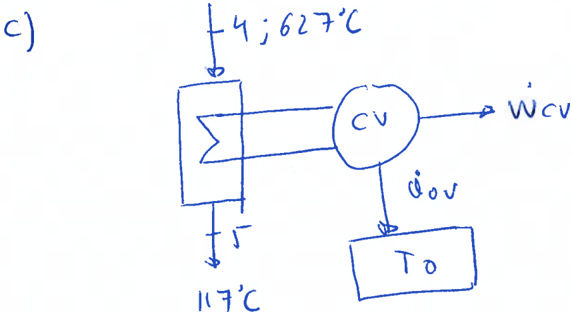 c)
4 ; 627°C
CV
ẆCV
Q̇OV
TO
5
117°C